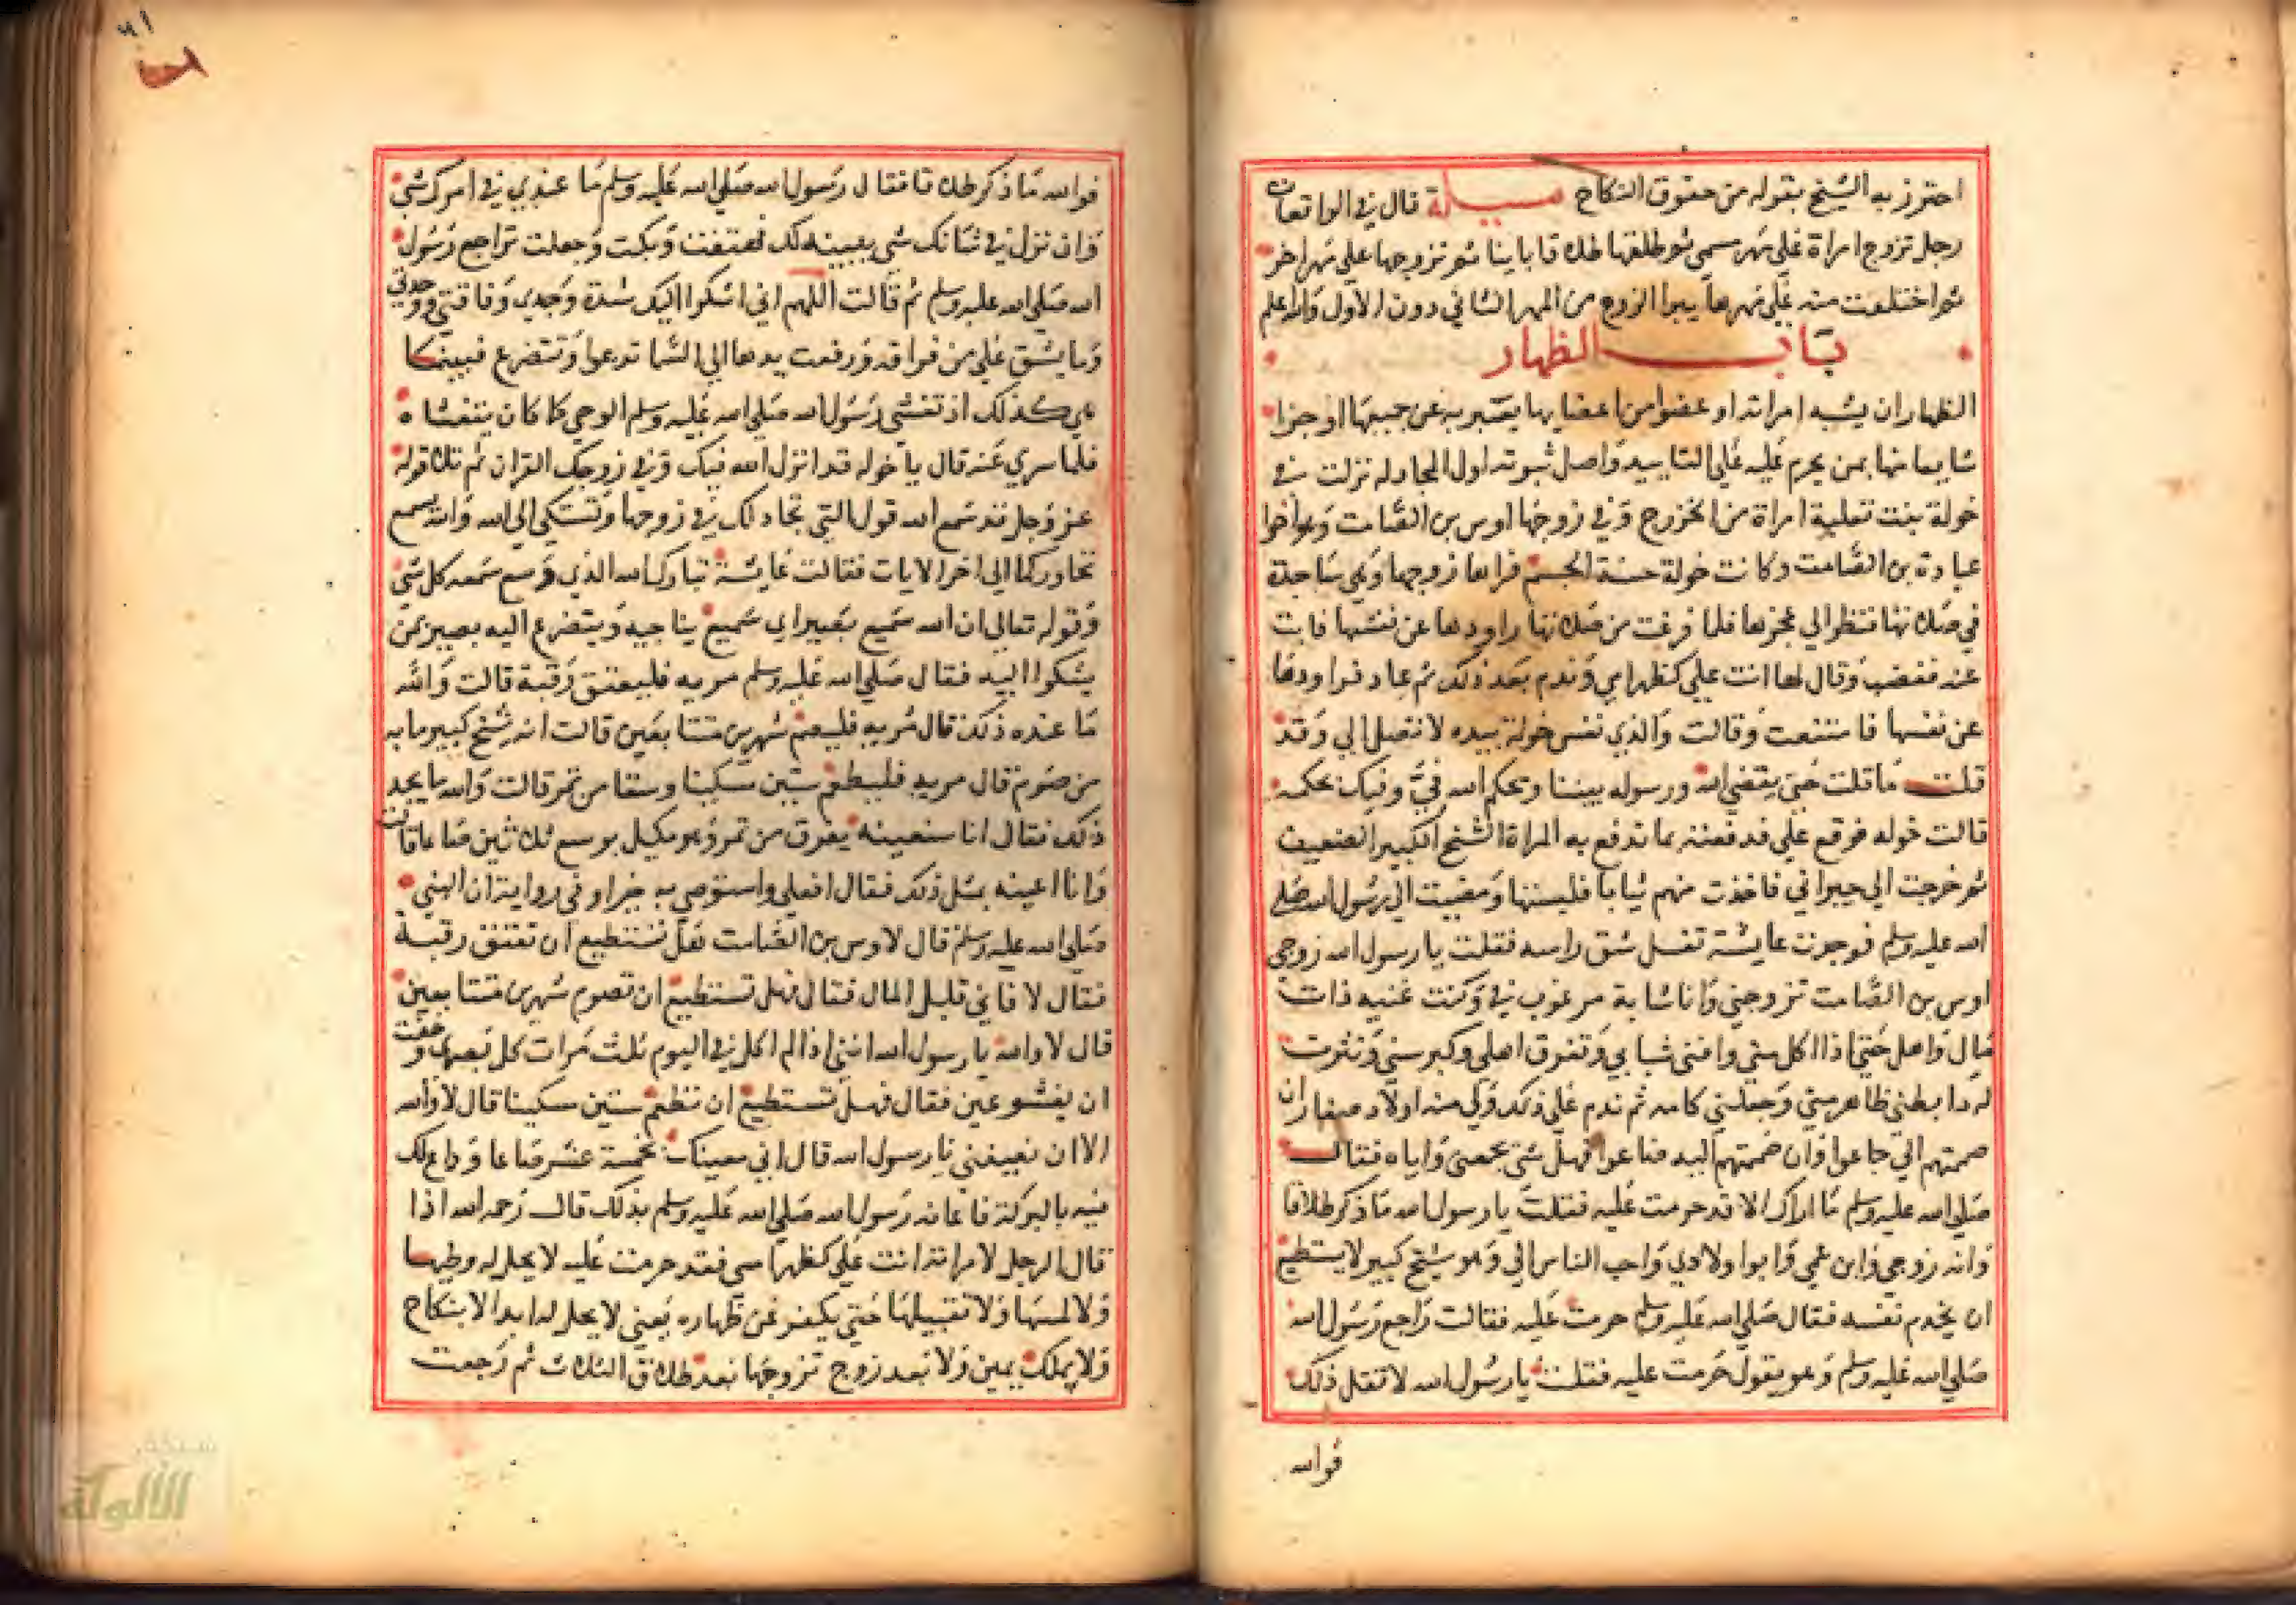 احترز به الشيخ بقوله من حقوق النكاح مسيلة قال في الواقعات
رجل تزوج امراة علي مهر مسمي ثم طلقها طلاقا باينا ثم تزوجها علي مهر اخر
ثم اختلعت منه علي مهرها يبرا الزوج من المهر الثاني دون الاول والله اعلم
باب الظهار
الظهار ان يشبه امراته او عضوا من اعضايها يعبر به عن جميعها او جزا
شايعا منها بمن يحرم عليه علي التابيد واصل ثبوته اول المجادلة نزلت في
خولة بنت ثعلبة امراة من الخزرج وفي زوجها اوس بن الصامت وهو اخوا
عبادة بن الصامت وكانت خولة حسنة الجسم فراها زوجها وهي ساجدة
في صلاتها فنظر الي عجزها فلما فرغت من صلاتها راودها عن نفسها فابت
عنه فغضب وقال لها انت علي كظهر امي وندم بعد ذلك ثم عاد فراودها
عن نفسها فامتنعت وقالت والذي نفس خولة بيده لا تصل الي وقد
قلت ما قلت حتي يقضي الله ورسوله بيننا ويحكم الله في وفيك بحكمه
قالت خوله فوقع علي فدفعته بما تدفع به المراة الشيخ الكبير الضعيف
ثم خرجت الي جيراني فاخذت منهم ثيابا فلبستها ومضيت الي رسول الله صلي
الله عليه وسلم فوجدت عايشة تغسل شق راسه فقلت يا رسول الله زوجي
اوس بن الصامت تزوجني وانا شابة مرغوب في وكنت غنيه ذات
مال واهل حتي اذا اكل مالي وافني شبابي وتفرق اهلي وكبر سني ونثرت
له ذا بطني ظاهر مني وجعلني كامه ثم ندم علي ذلك ولي منه اولاد صغار ان
ضممتهم الي جاعوا وان ضممتهم اليه ضاعوا فهل شي يجمعني واياه فقال
صلي الله عليه وسلم ما اراك الا قد حرمت عليه فقلت يا رسول الله ما ذكر طلاقا
وانه زوجي وابن عمي وابوا ولادي واحب الناس الي وهو شيخ كبير لا يستطيع
ان يخدم نفسه فقال صلي الله عليه وسلم حرمت عليه فقالت راجع رسول الله
صلي الله عليه وسلم وهو يقول حرمت عليه فقلت يا رسول الله لا تقل ذلك
فوالله
٦١
فوالله ما ذكر طلاقا فقال رسول الله صلي الله عليه وسلم ما عندي في امرك شي
وان نزل في شانك شي يبينه لك فهتفت وبكت وجعلت تراجع رسول
الله صلي الله عليه وسلم ثم قالت اللهم اني اشكوا اليك شدة وجدي وفاقتي ووحدتي
وما يشق علي من فراقه ورفعت يدها الي السما تدعوا وتتضرع فبينما
هي كذلك اذ تغشي رسول الله صلي الله عليه وسلم الوحي كما كان يتغشاه
فلما سري عنه قال يا خوله قد انزل الله فيك وفي زوجك القران ثم تلا قوله
عز وجل قد سمع الله قول التي تجادلك في زوجها وتشتكي الي الله والله يسمع
تحاوركما الي اخر الايات فقالت عايشة تبارك الله الذي وسع سمعه كل شي
وقوله تعالي ان الله سميع بصير اي سميع يناجيه ويتضرع اليه بصير بمن
يشكوا اليه فقال صلي الله عليه وسلم مريه فليعتق رقبة قالت والله
ما عنده ذلك قال مريه فليصم شهرين متتابعين قالت انه شيخ كبير ما به
من صوم قال مريه فليطعم ستين مسكينا وسقا من تمر قالت والله ما يجد
ذلك فقال انا سنعينه بعرق من تمر وهو مكيل يوسع ثلاثين صاعا قالت
وانا اعينه بمثل ذلك فقال افعلي واستوصي به خيرا وفي رواية ان النبي
صلي الله عليه وسلم قال لاوس بن الصامت هل تستطيع ان تعتق رقبة
فقال لا فاني قليل المال فقال فهل تستطيع ان تصوم شهرين متتابعين
قال لا والله يا رسول الله انني اذا لم اكل في اليوم ثلث مرات كل بصري وخفت
ان يغشو عيني فقال فهل تستطيع ان تطعم ستين مسكينا قال لا والله
الا ان تعينني يا رسول الله قال اني معينك بخمسة عشر صاعا وداع لك
فيه بالبركة فاعانه رسول الله صلي الله عليه وسلم بذلك قال رحمه الله اذا
قال الرجل لامراته انت علي كظهر امي فقد حرمت عليه لا يحل له وطيها
ولا لمسها ولا تقبيلها حتي يكفر عن ظهاره يعني لا يحل له ابدا لا بنكاح
ولا بملك يمين ولا بعد زوج تزوجها بعد طلاق الثلاث ثم رجعت
شبكة
الألوكة